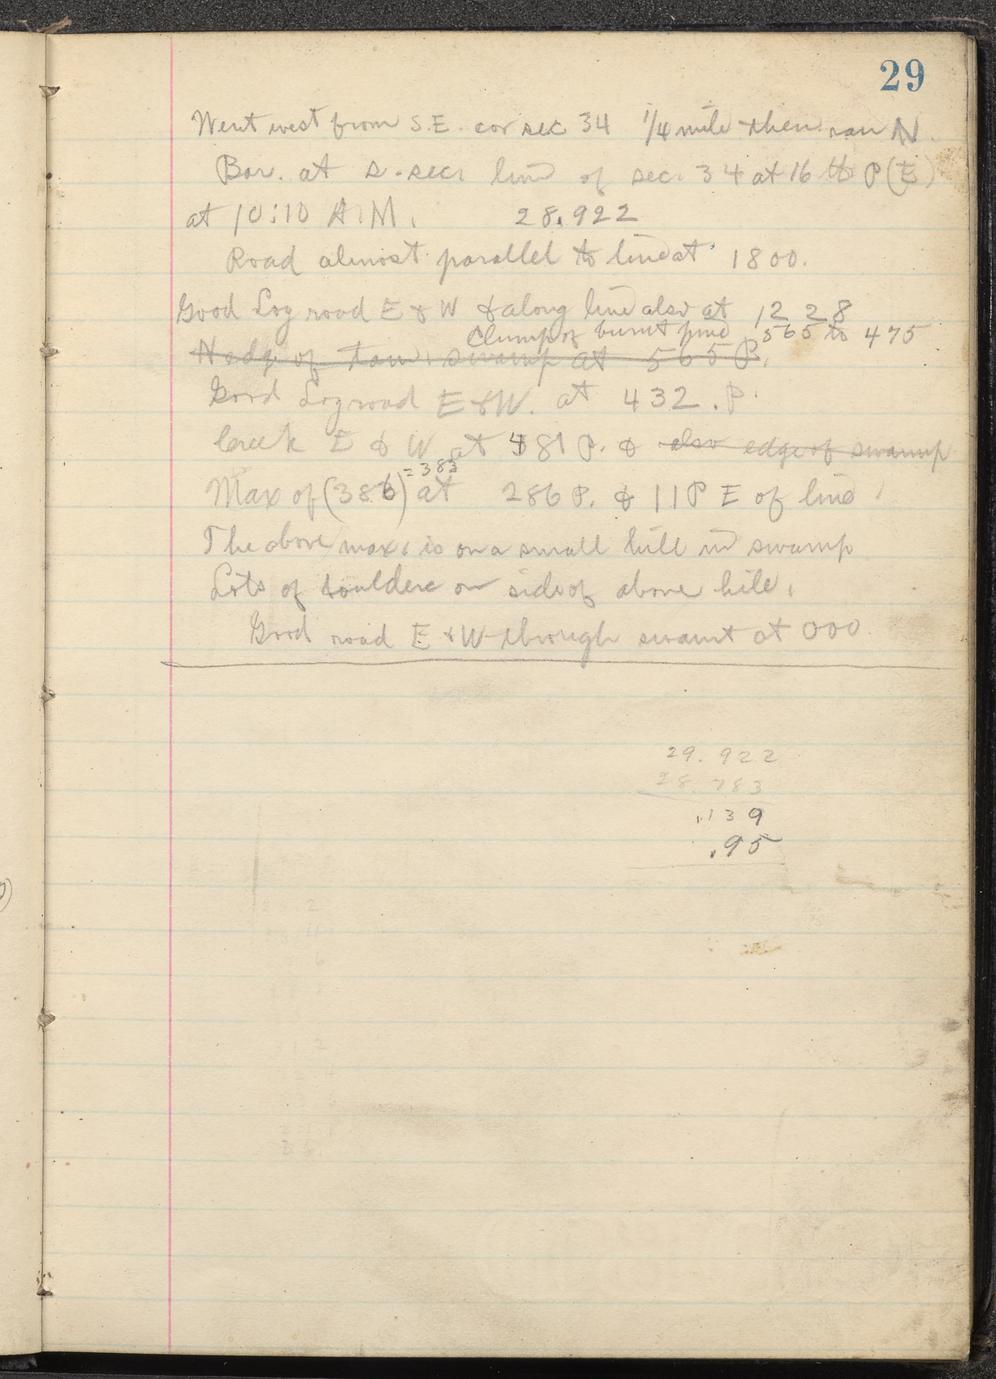 29
Went west from S.E. cor sec 34 1/4 mile then ran N.
Bar. at s. sec. line of sec. 34 at 16 th P (E)
at 10:10 A.M. 28.922
Road almost parallel to line at 1800.
Good Log road E & W & along line also at 1228
Clump of burnt pine 565 to 475
N edge of tam. swamp at 565 P.
Good Log road E & W. at 432. P.
Creek E & W at 381 P. & also edge of swamp
= 383
Max of (386) at 286 P. & 11 P E of line
The above max. is on a small hill in swamp
Lots of boulders on side of above hill.
Good road E & W through swamp at 000.
29.922
28.783
.139
.95